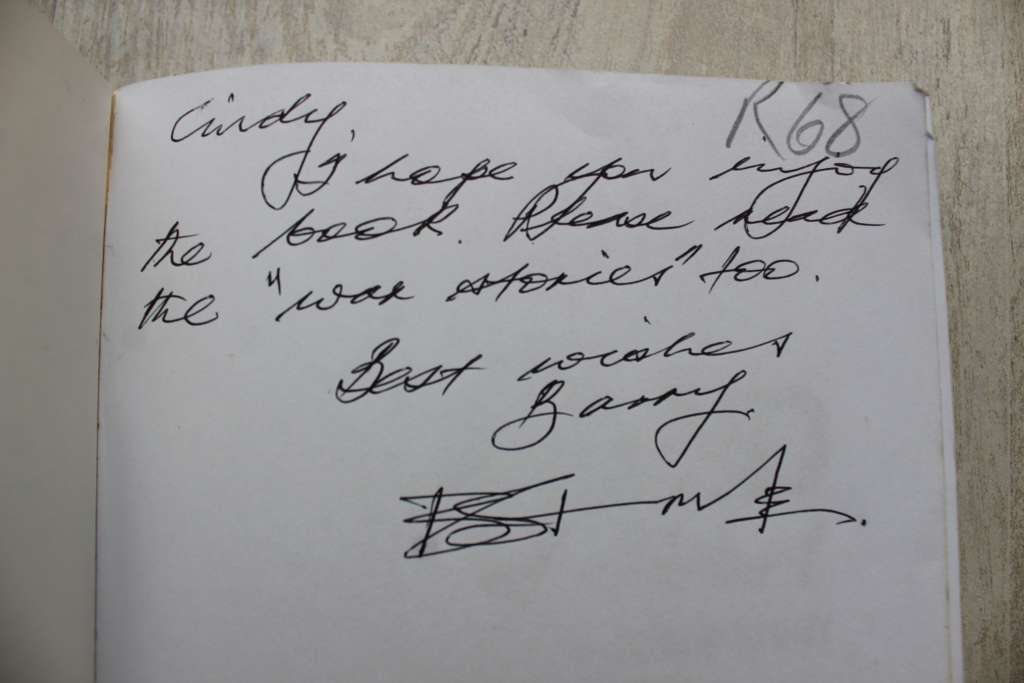 R68
Cindy,
I hope you enjoy
the book. Please read
the "war stories" too.
Best wishes
Barry.